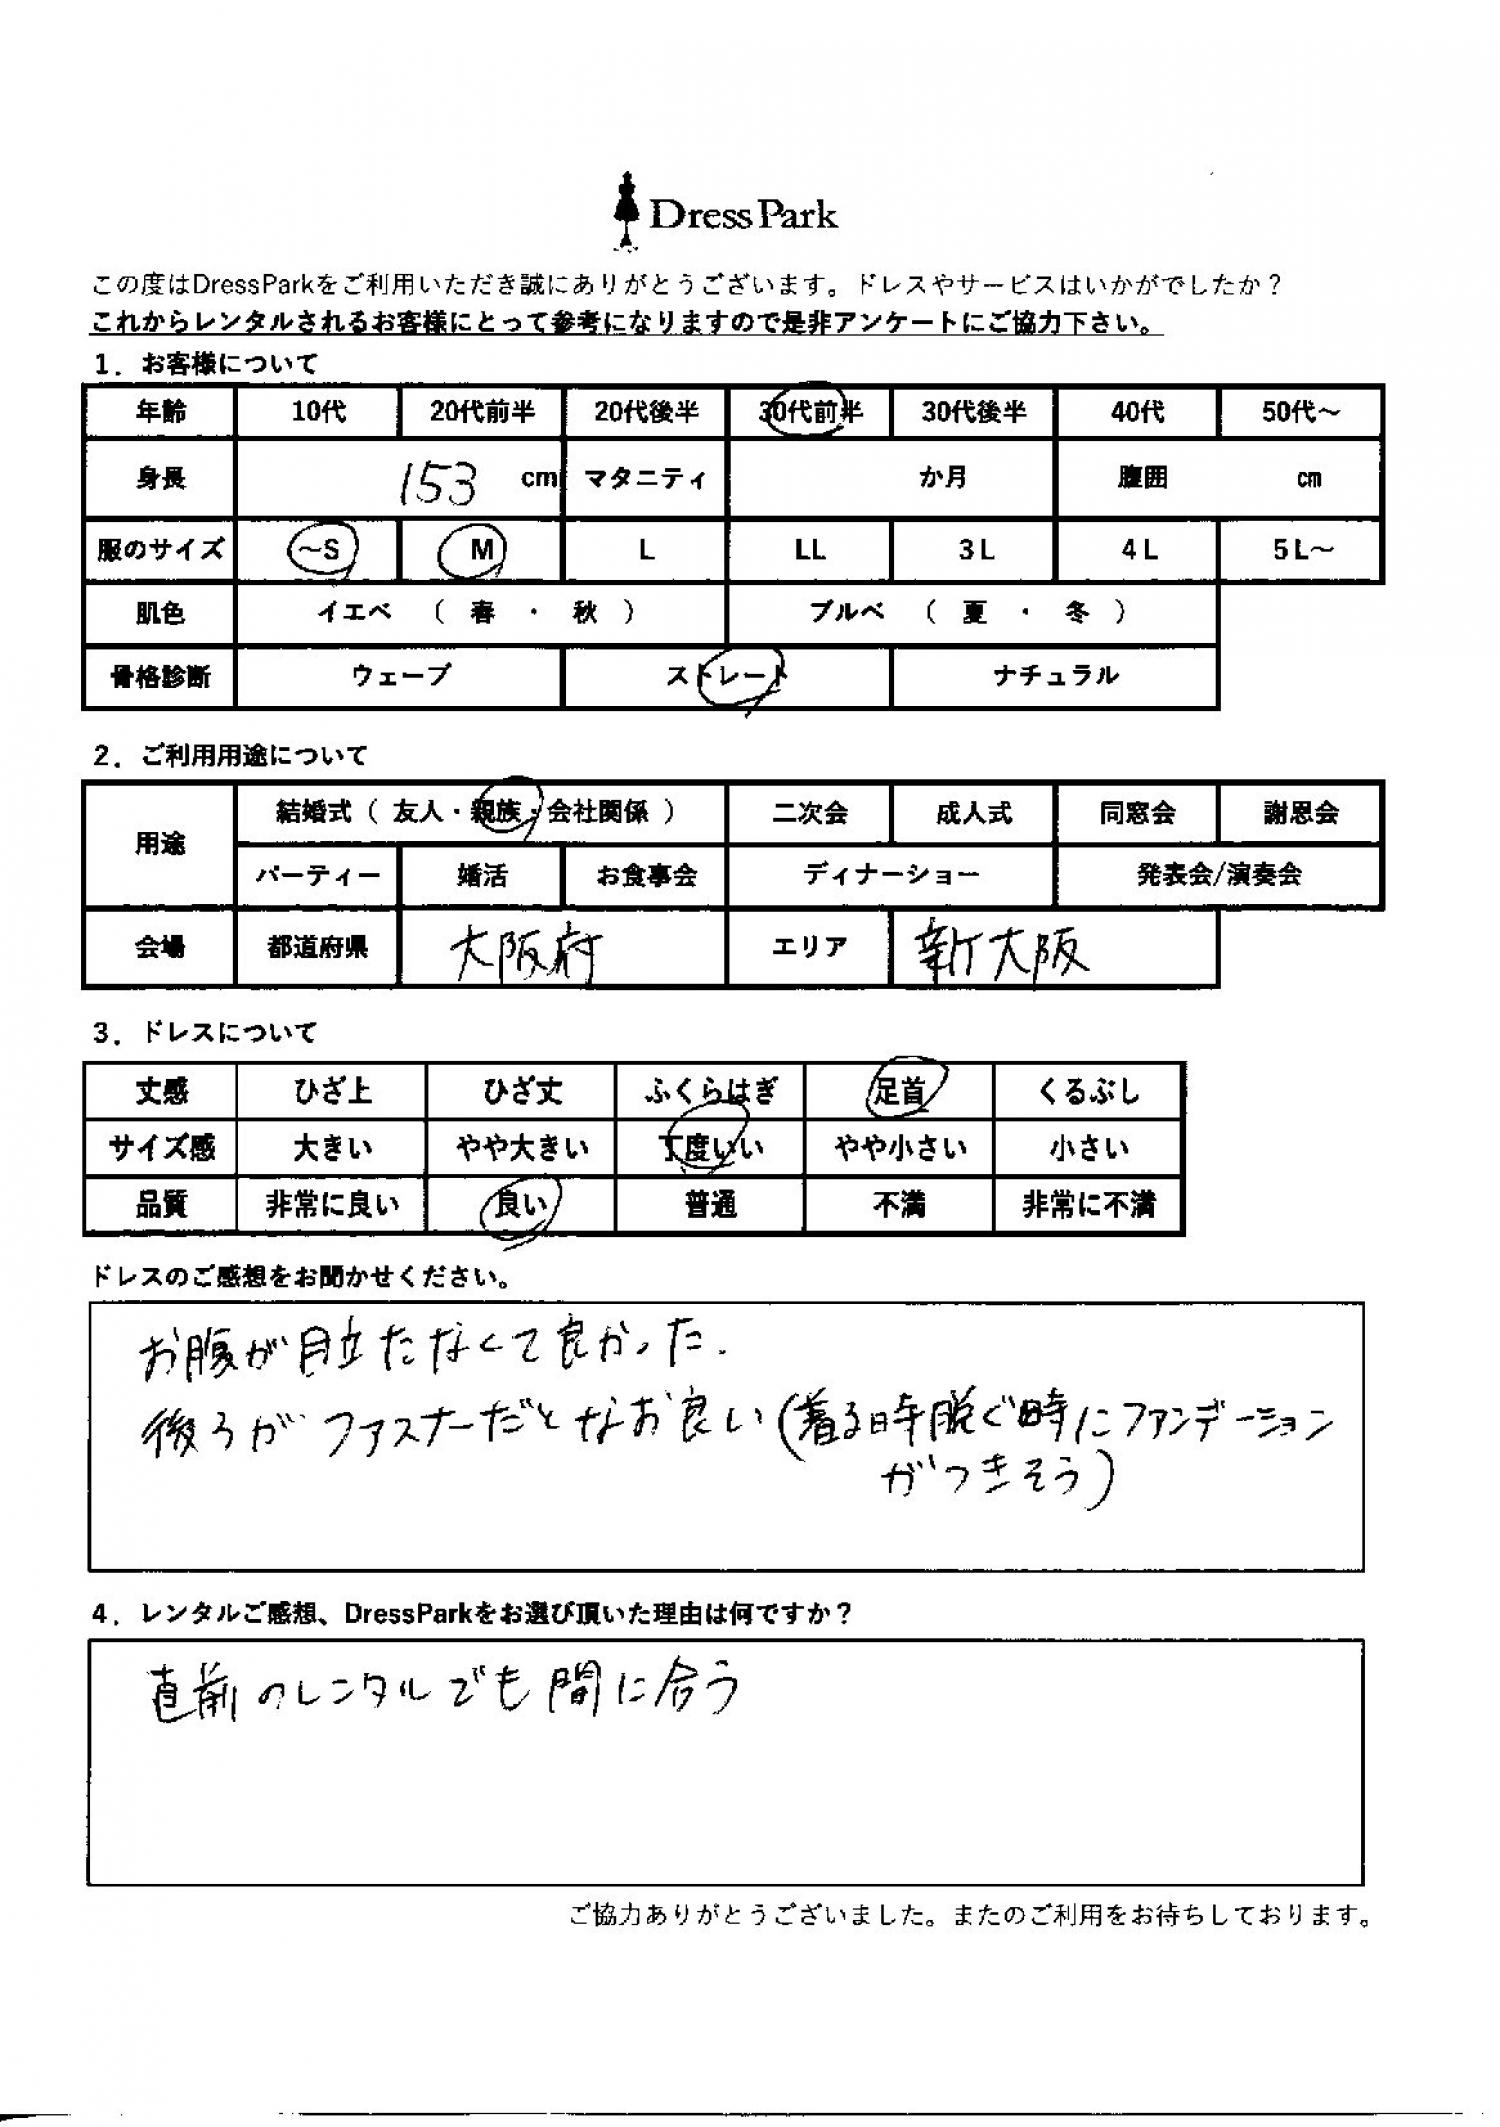 DressPark
この度はDressParkをご利用いただき誠にありがとうございます。ドレスやサービスはいかがでしたか？
これからレンタルされるお客様にとって参考になりますので是非アンケートにご協力下さい。
1．お客様について
年齢 10代 20代前半 20代後半 30代前半 30代後半 40代 50代～
身長 153 cm マタニティ か月 腹囲 cm
服のサイズ ～S M L LL 3L 4L 5L～
肌色 イエベ （ 春 ・ 秋 ） ブルベ （ 夏 ・ 冬 ）
骨格診断 ウェーブ ストレート ナチュラル
2．ご利用用途について
用途 結婚式（ 友人・親族・会社関係 ） 二次会 成人式 同窓会 謝恩会
パーティー 婚活 お食事会 ディナーショー 発表会/演奏会
会場 都道府県 大阪府 エリア 新大阪
3．ドレスについて
丈感 ひざ上 ひざ丈 ふくらはぎ 足首 くるぶし
サイズ感 大きい やや大きい 丁度いい やや小さい 小さい
品質 非常に良い 良い 普通 不満 非常に不満
ドレスのご感想をお聞かせください。
お腹が目立たなくて良かった.
後ろがファスナーだとなお良い(着る時脱ぐ時にファンデーション
がつきそう)
4．レンタルご感想、DressParkをお選び頂いた理由は何ですか？
直前のレンタルでも間に合う
ご協力ありがとうございました。またのご利用をお待ちしております。